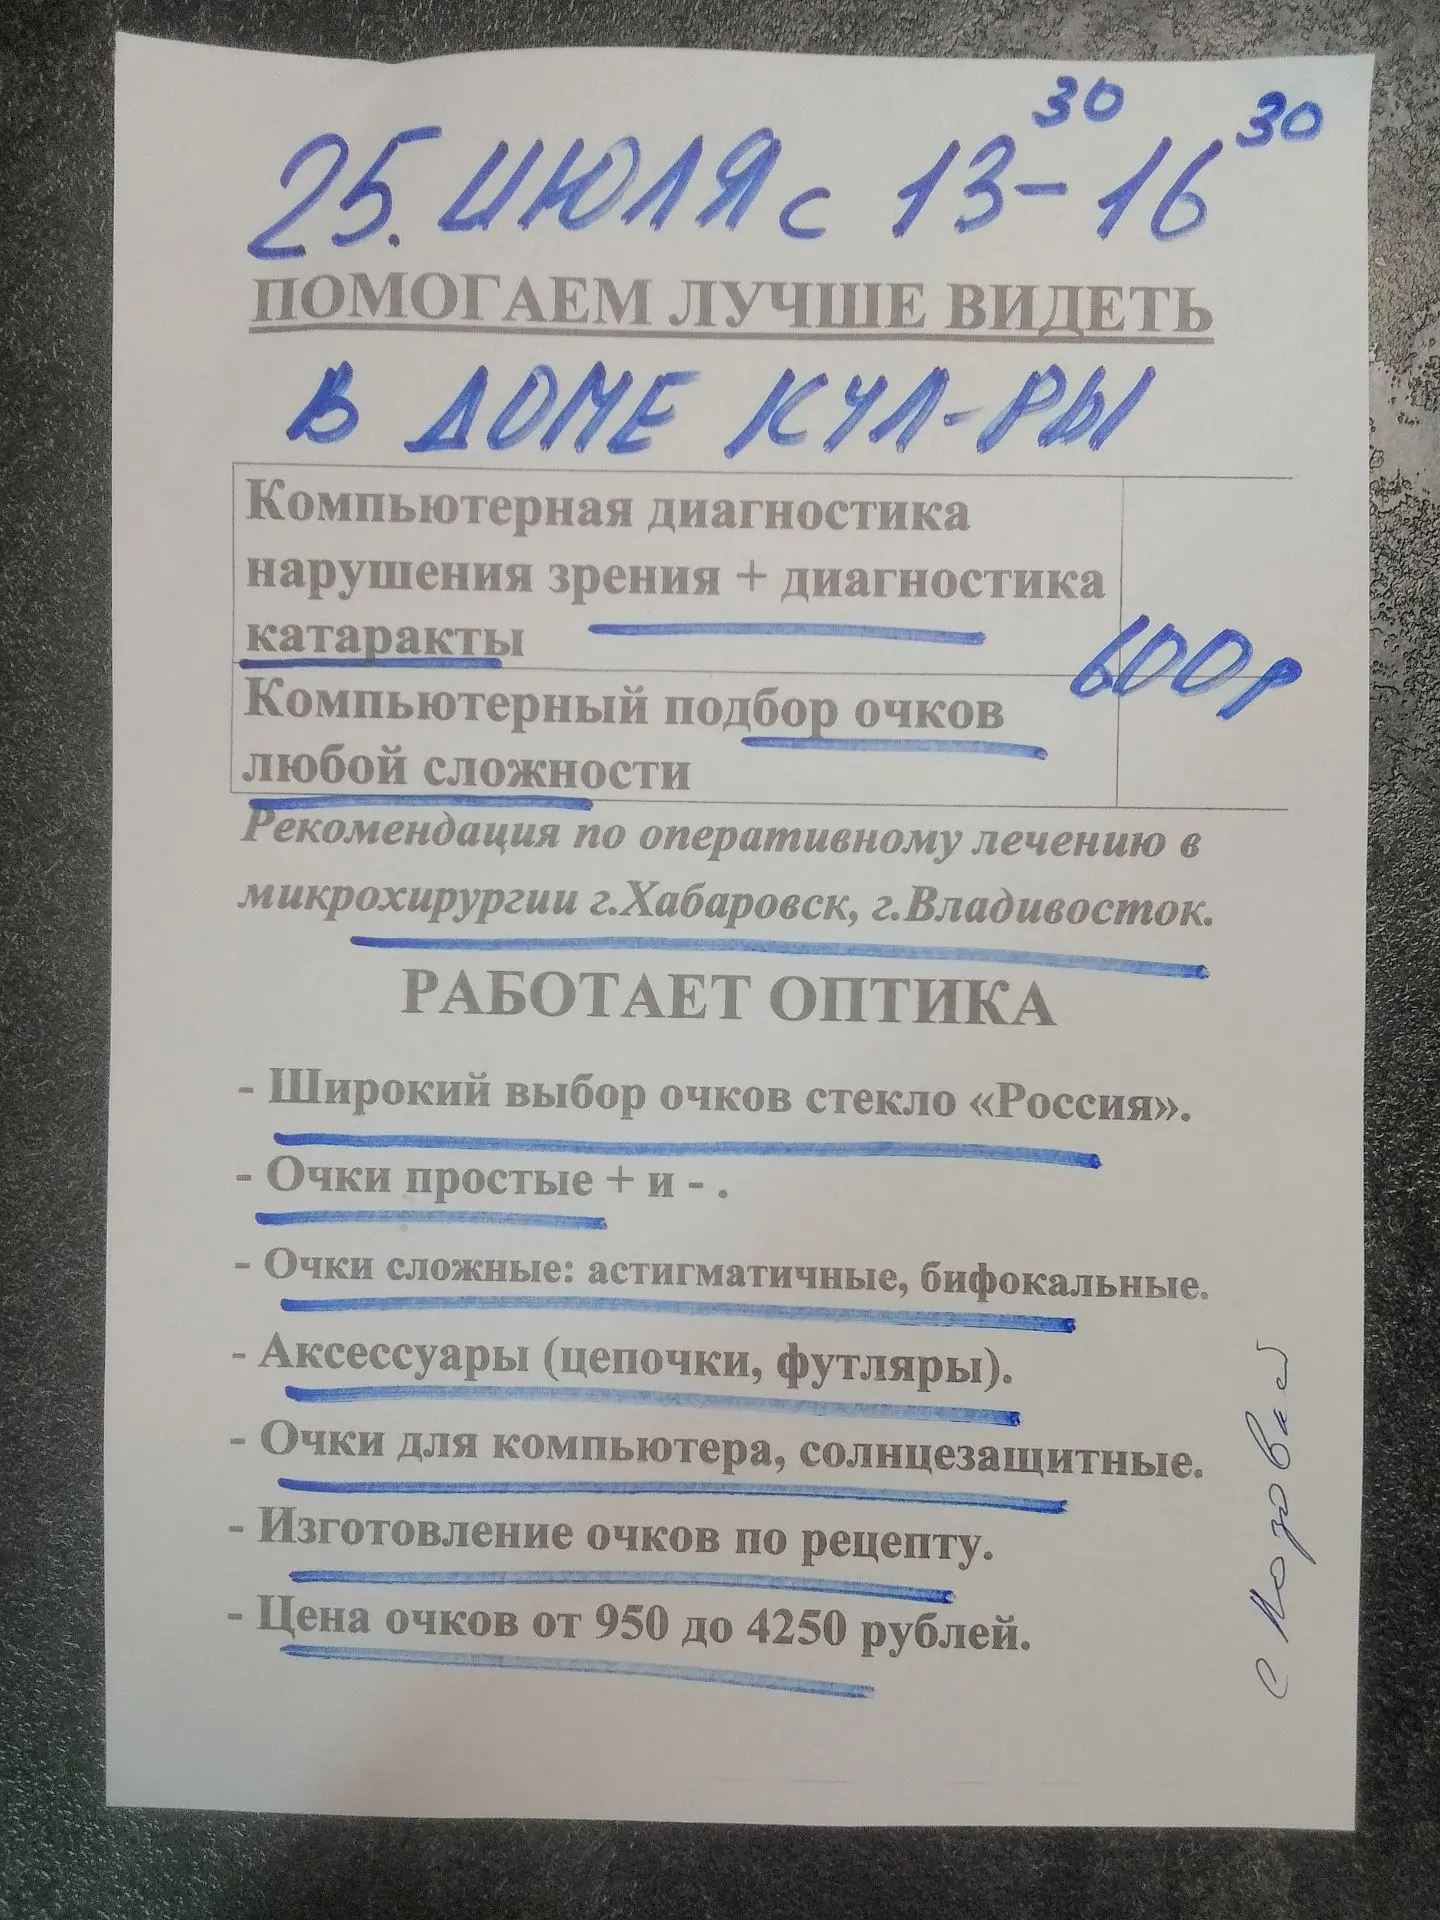 25. ИЮЛЯ с 13³⁰ - 16³⁰
ПОМОГАЕМ ЛУЧШЕ ВИДЕТЬ
В ДОМЕ КУЛ-РЫ
Компьютерная диагностика
нарушения зрения + диагностика
катаракты
600р
Компьютерный подбор очков
любой сложности
Рекомендация по оперативному лечению в
микрохирургии г.Хабаровск, г.Владивосток.
РАБОТАЕТ ОПТИКА
- Широкий выбор очков стекло «Россия».
- Очки простые + и - .
- Очки сложные: астигматичные, бифокальные.
- Аксессуары (цепочки, футляры).
- Очки для компьютера, солнцезащитные.
- Изготовление очков по рецепту.
- Цена очков от 950 до 4250 рублей.
с